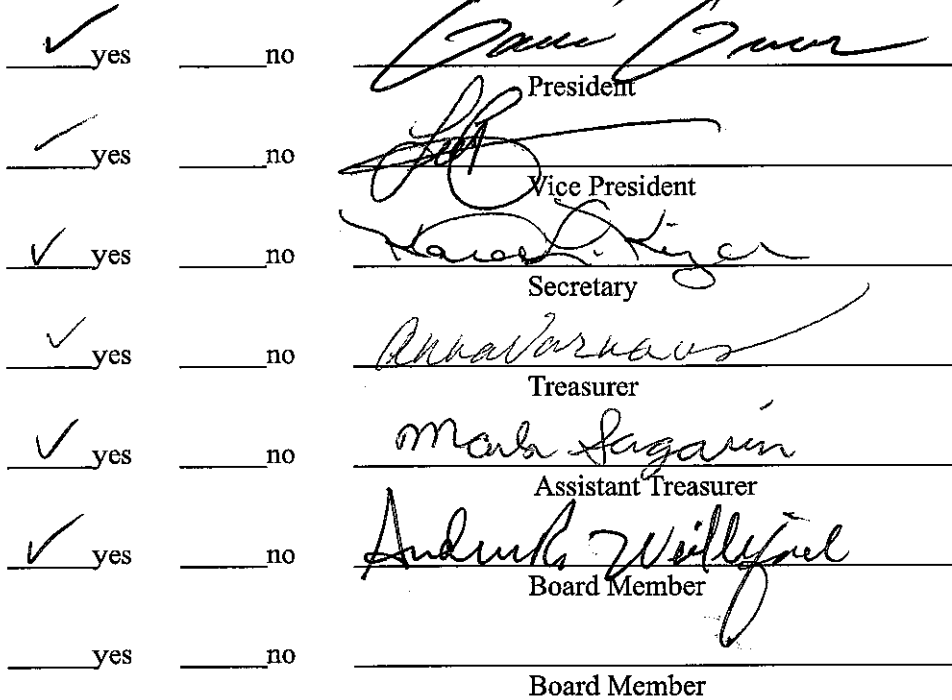 ✓ yes ___ no
President
✓ yes ___ no
Vice President
✓ yes ___ no
Secretary
✓ yes ___ no Anna
Treasurer
✓ yes ___ no Mark Sagarin
Assistant Treasurer
✓ yes ___ no
Board Member
___ yes ___ no
Board Member